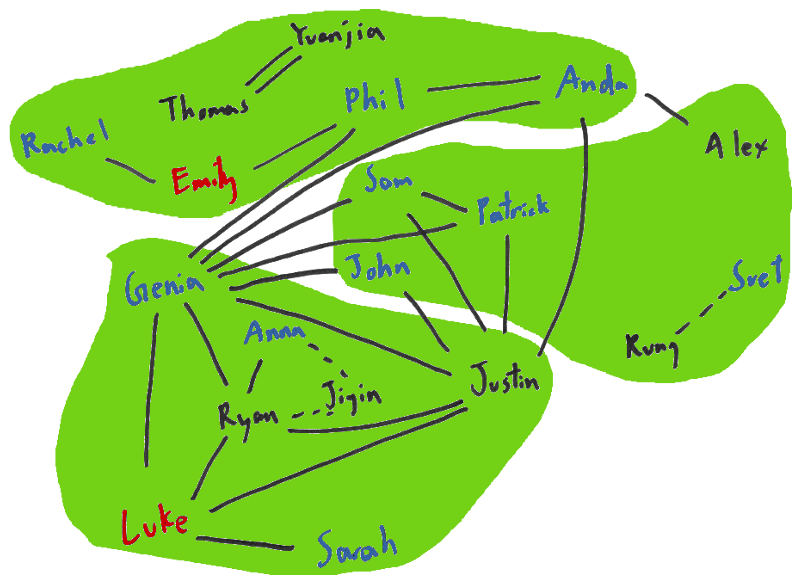 Yuanjia
Thomas
Phil
Anda
Rachel
Emily
Alex
Som
Patrick
John
Svet
Genia
Anna
Rung
Jigin
Justin
Ryan
Luke
Sarah